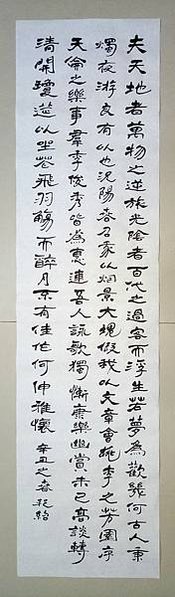 夫天地者萬物之逆旅光陰者百代之過客而浮生若夢為歡幾何古人秉
燭夜游良有以也況陽春召我以烟景大塊假我以文章會桃李之芳園序
天倫之樂事羣季俊秀皆為惠連吾人詠歌獨慚康樂幽賞未已高談轉
清開瓊筵以坐花飛羽觴而醉月不有佳作何伸雅懷 辛丑之春